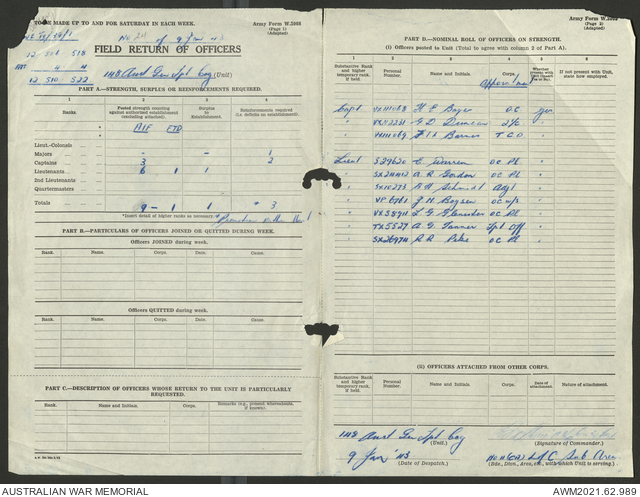 TO BE MADE UP TO AND FOR SATURDAY IN EACH WEEK.
Army Form W.3008
(Page 1)
(Adapted)
of 9 Jan 43
12 510 522
FIELD RETURN OF OFFICERS
148 Aust Gen Tpt Coy (Unit)
PART A—STRENGTH, SURPLUS OR REINFORCEMENTS REQUIRED.
1 2 3 4
Ranks. Posted strength counting against authorised establishment (excluding attached). Surplus to Establishment. Reinforcements required (i.e. deficits on establishment).
AIF FTD
Lieut.-Colonels
Majors - - 1
Captains 3 - 2
Lieutenants 6 1 1
2nd Lieutenants
Quartermasters
Totals 9 1 1 * 3
*Insert detail of higher ranks as necessary.
PART B.—PARTICULARS OF OFFICERS JOINED OR QUITTED DURING WEEK.
Officers JOINED during week.
Rank. Name. Corps. Date. Cause.
Officers QUITTED during week.
Rank. Name. Corps. Date. Cause.
PART C.—DESCRIPTION OF OFFICERS WHOSE RETURN TO THE UNIT IS PARTICULARLY REQUESTED.
Rank. Name and Initials. Corps. Remarks (e.g., present whereabouts, if known).
Army Form W.3008
(Page 2)
(Adapted)
PART D.—NOMINAL ROLL OF OFFICERS ON STRENGTH.
(i) Officers posted to Unit (Total to agree with column 2 of Part A).
1 2 3 4 5 6
Substantive Rank and higher temporary rank, if held. Personal Number. Name and Initials. Corps. Whether present with Unit (insert Yes or No). If not present with Unit, state how employed.
Appointment
Capt H E OC yes
" G D Duncan 2/c "
" Barnes T C O "
Lieut S29620 C Warren OC Pl "
" A R Gordon OC Pl "
" SX10273 Schmidt Adjt "
" J H OC W/S "
" L G OC Pl "
" TX5527 A G Tanner Tpt Off "
" R R Pike OC Pl "
(ii) OFFICERS ATTACHED FROM OTHER CORPS.
Substantive Rank and higher temporary rank, if held. Personal Number. Name and Initials. Corps. Date of attachment. Nature of attachment.
148 Aust Gen Tpt Coy (Unit.)
(Signature of Commander.)
9 Jan '43
(Date of Despatch.)
L of C Sub Area
(Bde., Divn., Area, etc., with which Unit is serving.)
AUSTRALIAN WAR MEMORIAL
AWM2021.62.989